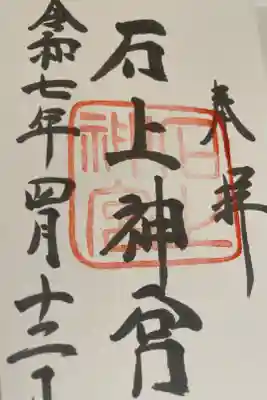 奉拝
石上神宮
石上神宮
令和七年四月十三日